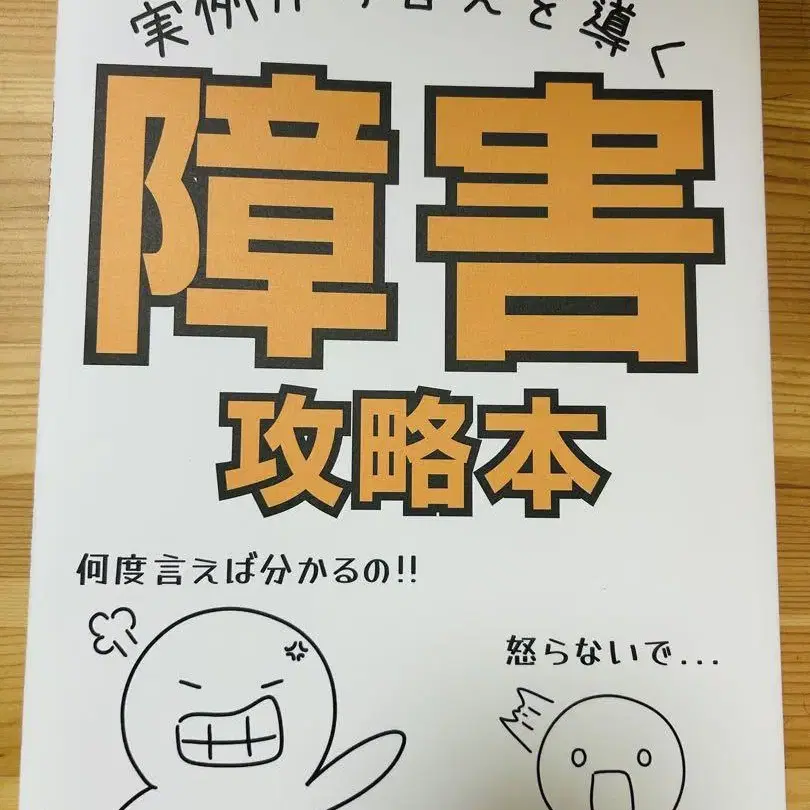 実例が
導く
障害
攻略本
何度言えば分かるの!!
怒らないで...